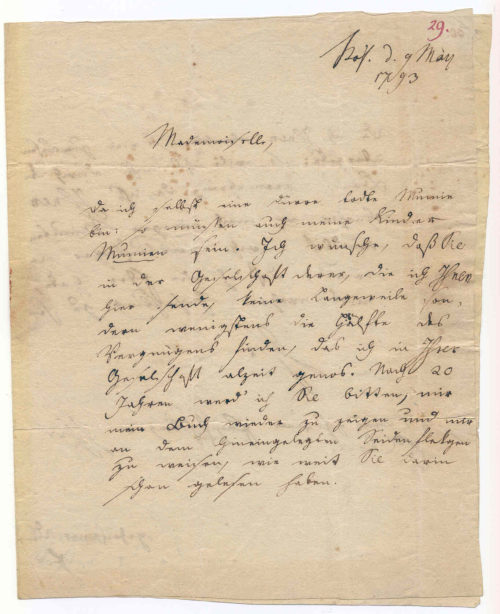 29.
d. 9 Mai
1793
Mademoiselle,
da ich selbst eine dürre todte Mumie
bin: so müssen auch meine Kinder
Mumien sein. Ich wünsche, daß Sie
in der Geselschaft derer, die ich Ihnen
hier sende, keine Langeweile son-
dern wenigstens die Hälfte des
Vergnügens finden, das ich in Ihrer
Geselschaft alzeit genos. Nach 20
Jahren werd' ich Sie bitten, mir
mein Buch wieder zu zeigen und mir
an dem hineingelegten Seidenflekgen
zu weisen, wie weit Sie darin
schon gelesen haben.